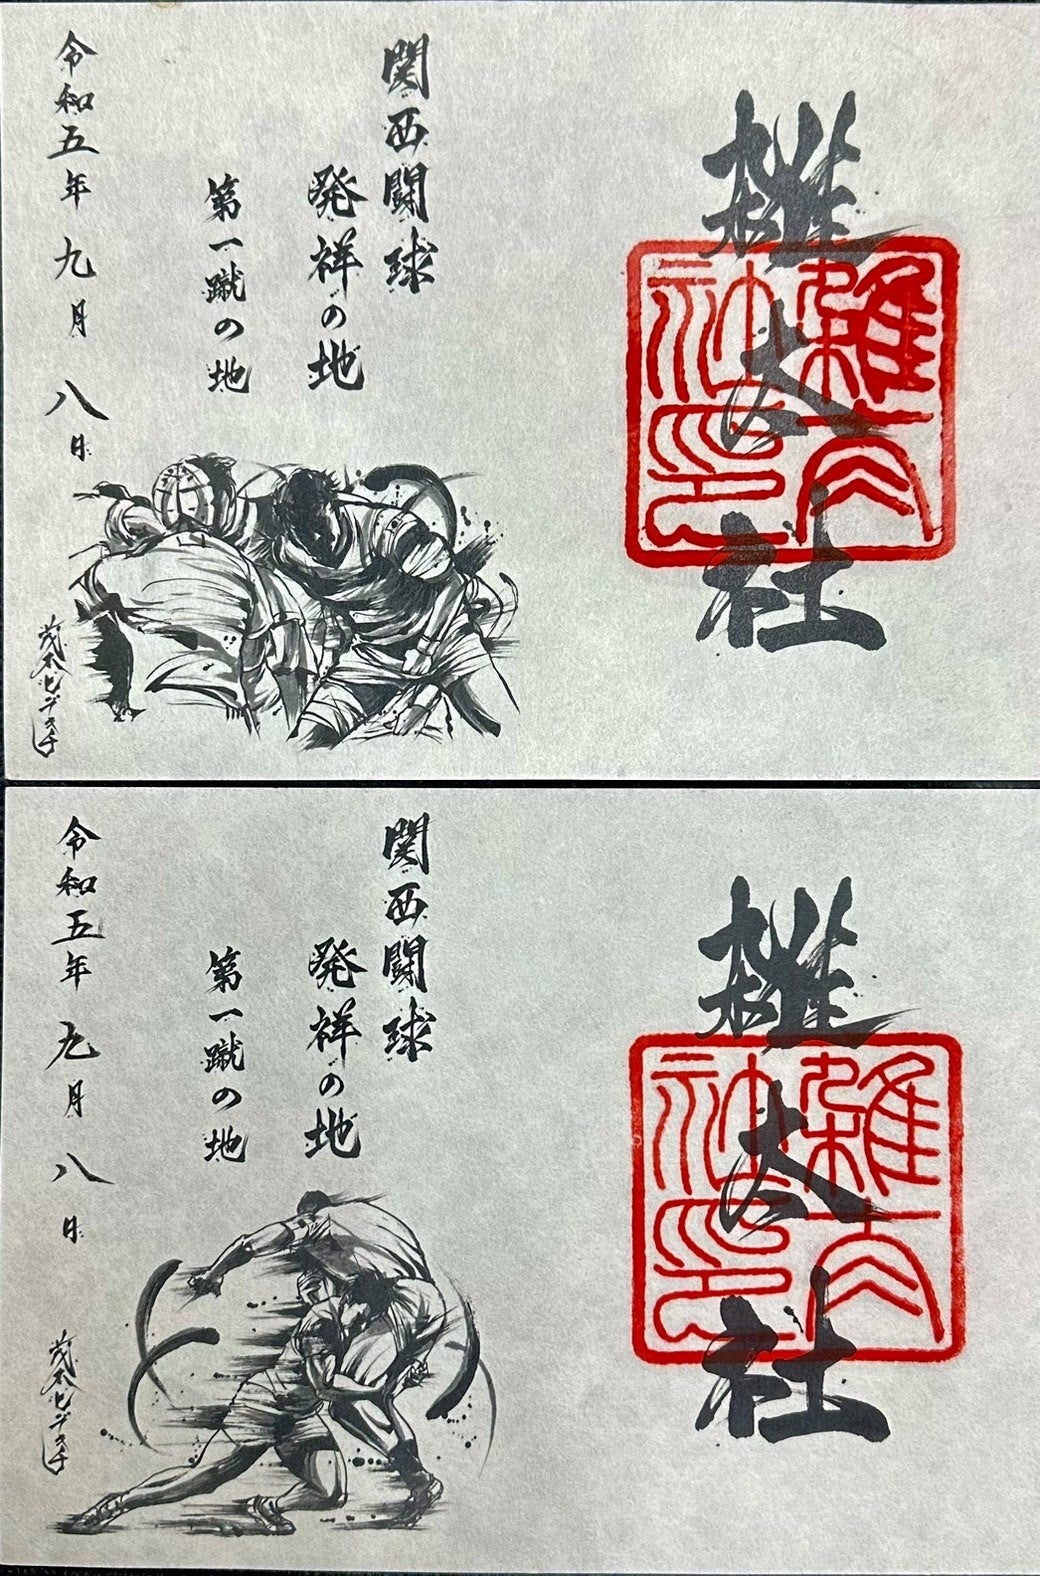 雑太社
雑太
社印
関西闘球
発祥の地
第一蹴の地
令和五年九月八日
茂本ヒデキチ
雑太社
雑太
社印
関西闘球
発祥の地
第一蹴の地
令和五年九月八日
茂本ヒデキチ